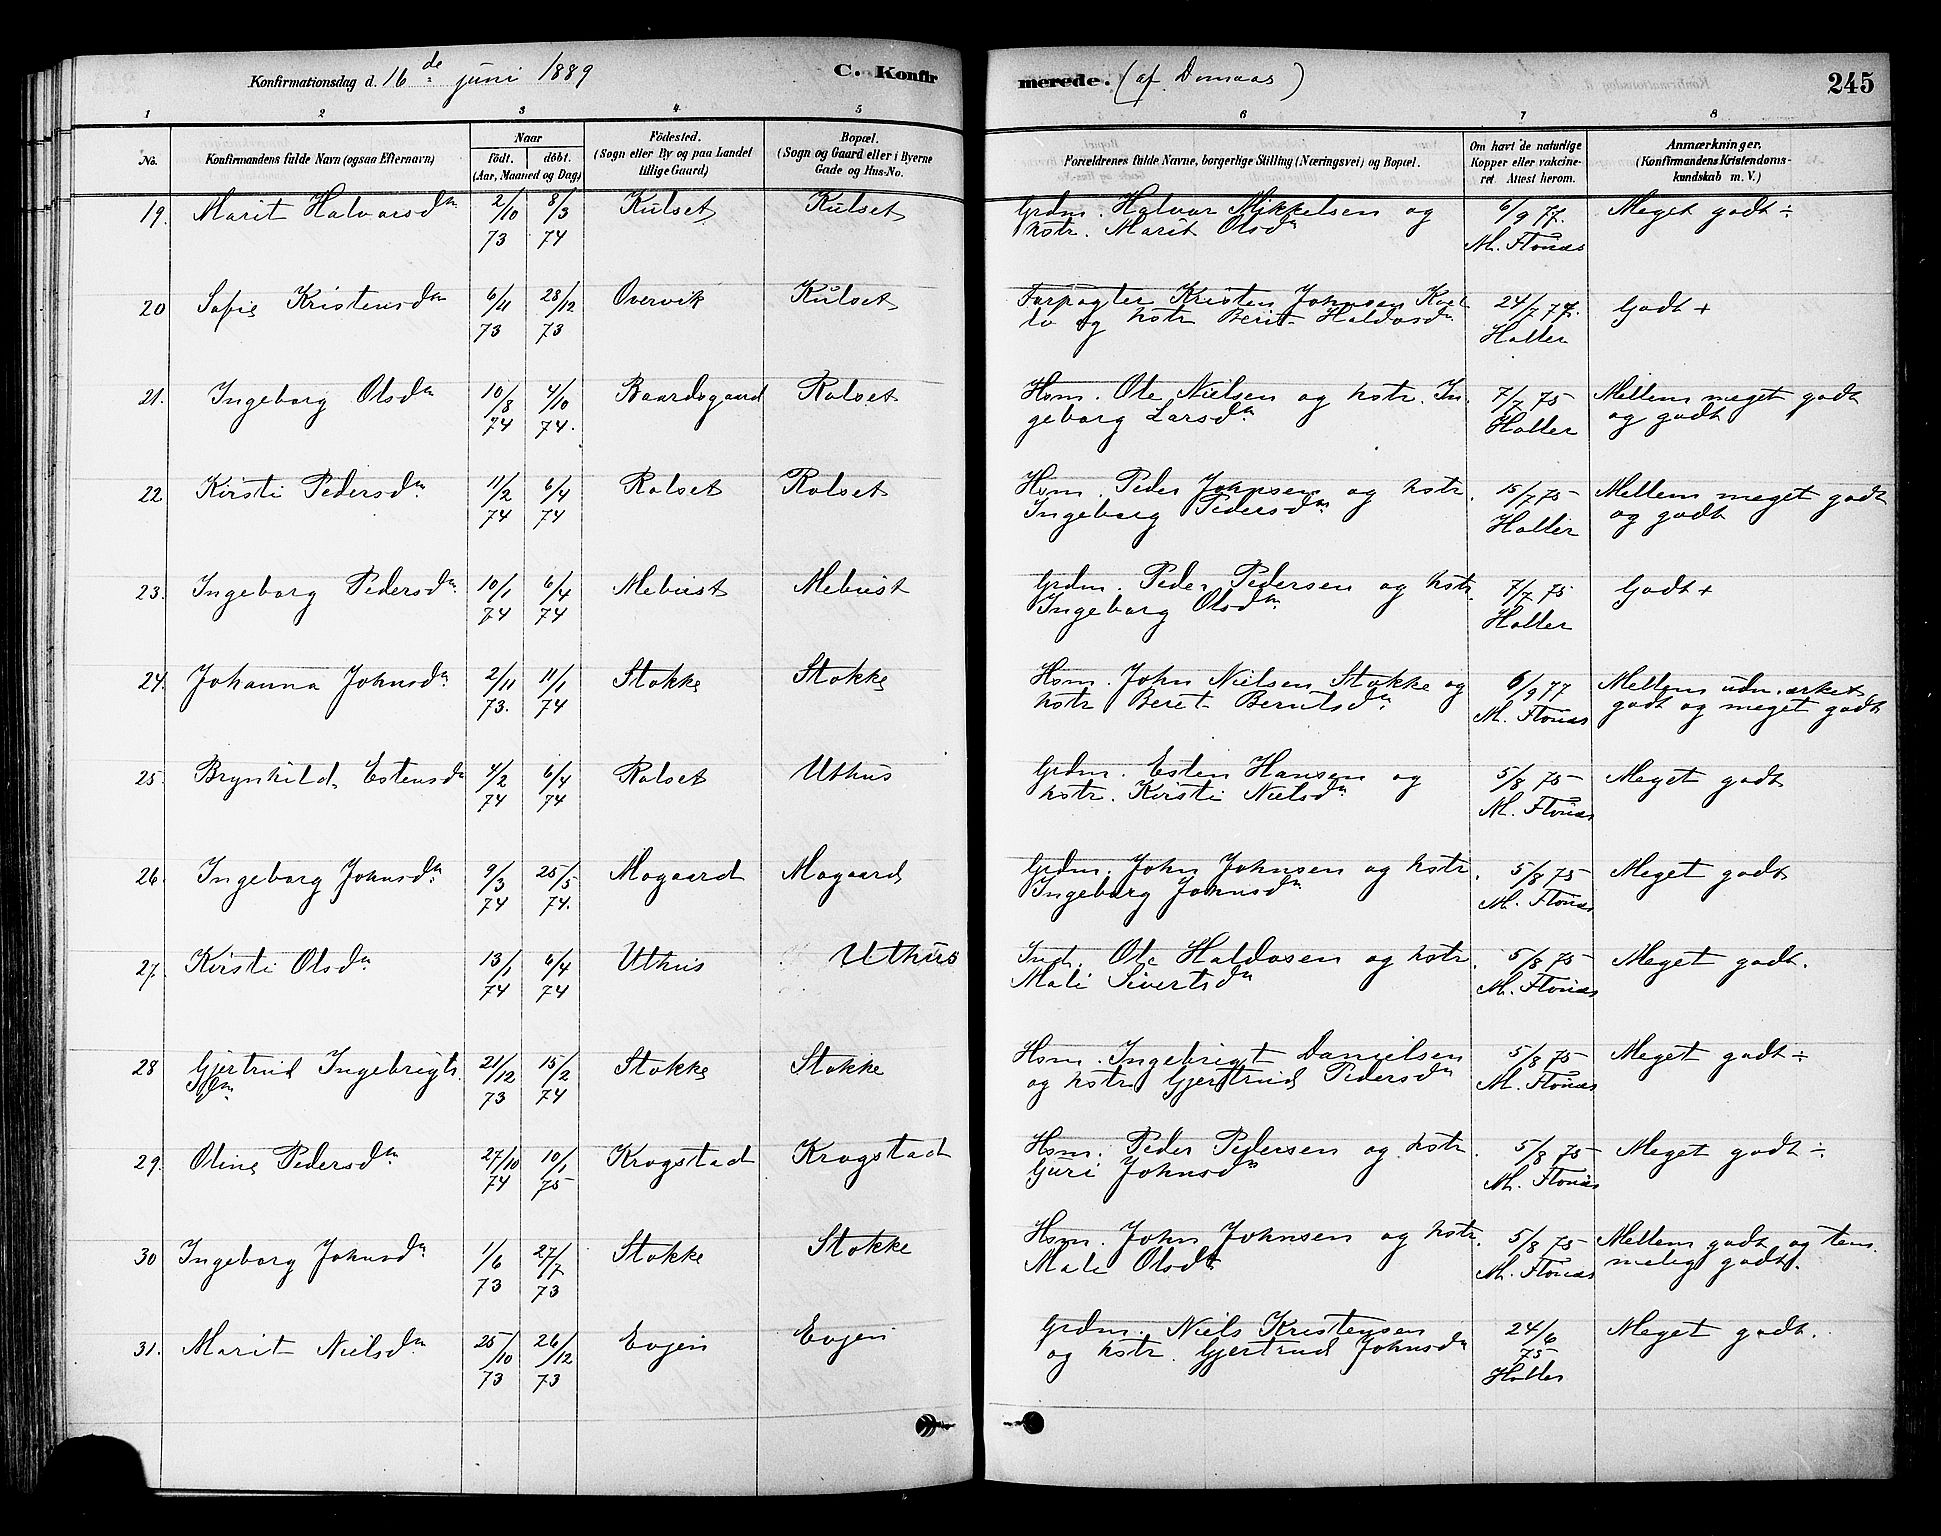 Konfirmationsdag d. 16de juni 1889
C. Konfirmerede. (af Domaas)
245
1 2 3 4 5 6 7 8
No.
Konfirmandens fulde Navn (ogsaa Efternavn)
Naar
födt. döbt.
(Aar, Maaned og Dag)
Födested.
(Sogn eller By og paa Landet
tillige Gaard)
Bopæl.
(Sogn og Gaard eller i Byerne
Gade og Hus-No.
Forældrenes fulde Navne, borgerlige Stilling (Næringsvei) og Bopæl.
Om havt de naturlige
Kopper eller vakcine-
ret. Attest herom.
Anmærkninger.
(Konfirmandens Kristendoms-
kundskab m. V.)
19. Marit Halvarsdn 2/10 73 8/3 74 Kulset Kulset Grdm. Halvar Mikkelsen og
hstr. Marit Olsdn 6/9 77. M. Flønæs Meget godt ÷
20 Sofie Kristensdn 6/11 73 28/12 73 Overvik Kulset Forpagter Kristen Johnsen
og hstr Berit Haldosdn 24/7 77. Haller Godt +
21. Ingeborg Olsdn 10/8 74 4/10 74. Baardsgaard Rolset Hsm. Ole Nielsen og hstr. In-
geborg Larsdn 7/7 75 Haller Mellem meget godt
og godt
22. Kirsti Pedersdn 11/2 74 6/4 74 Rolset Rolset Hsm. Peder Johnsen og hstr.
Ingeborg Pedersdn 15/7 75 Haller Mellem meget godt
og godt
23. Ingeborg Pedersdn 10/1 74 6/4 74 Mebust Mebust Grdm. Peder Pedersen og hstr.
Ingeborg Olsdn 7/7 75 Haller Godt +
24. Johanna Johnsdn 2/11 73. 11/1 74 Stokke Stokke Hsm. John Nielsen Stokke og
hstr Beret Berntsdn 6/9 77 M. Flønæs Mellem udmærket
godt og meget godt
25. Brynhild Estensdn 4/2 74 6/4 74 Rolset Uthus Grdm. Esten Hansen og
hstr. Kirsti Nielsdn 5/8 75 M. Flønæs Meget godt
26. Ingeborg Johnsdn 9/3 74 25/5 74. Mogaard Mogaard Grdm. John Johnsen og hstr.
Ingeborg Johnsdn 5/8 75 M. Flønæs Meget godt
27. Kirsti Olsdn 13/1 74 6/4 74 Uthus Uthus Ind. Ole Haldosen og hstr.
Mali Sivertsdn 5/8 75 M. Flønæs Meget godt.
28 Gjertrud Ingebrigts-
dn 21/12 73 15/2 74 Stokke Stokke Hsm. Ingebrigt Danielsen
og hstr Gjertrud Pedersdn 5/8 75 M. Flønæs Meget godt ÷
29. Oline Pedersdn 27/10 74 10/1 75 Krogstad Krogstad Hsm. Peder Pedersen og hstr.
Guri Johnsdn 5/8 75 M. Flønæs Meget godt ÷
30 Ingeborg Johnsdn 1/6 73 27/7 73 Stokke Stokke Hsm. John Johnsen og hstr.
Mali Olsdn 5/8 75 M. Flønæs Mellem godt og tem-
melig godt.
31. Marit Nielsdn 25/10 73 26/12 73 Evjen Evjen Grdm. Niels Kristensen
og hstr. Gjertrud Johnsdn 24/6 75 Haller Meget godt.